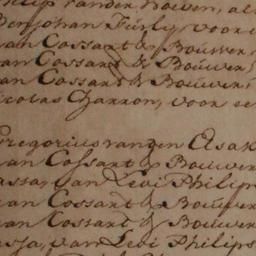 Philip vander Hoeven, al
Der Johan Fürly voor e
van Cossart & Bouwer,
van Cossart & Bouwer,
van Cossart & Bouwer,
icolas Charron, voor ee
Gregorius van den Asak
van Cossart & Bouwer
van Levi Philips
van Cossart & Bouwer
van Cossart & Bouwer
van Levi Philips